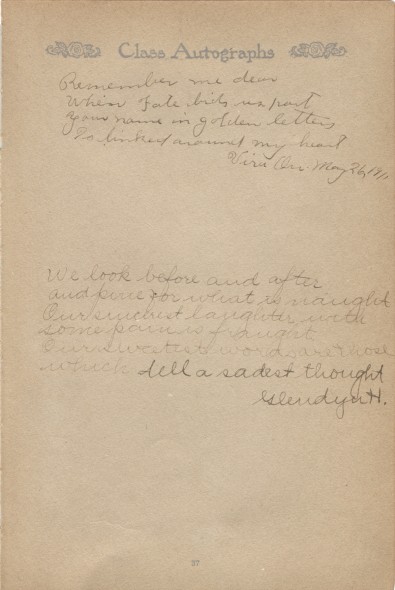 Class Autographs
Remember me dear
When Fate bids us part
Your name in golden letters
Is linked around my heart
May 26, 1911
We look before and after
and pine for what is naught
Our sincerest laughter with
some pain is fraught
Our sweetest words are those
which tell a sadest thought
Glendyn H.
37